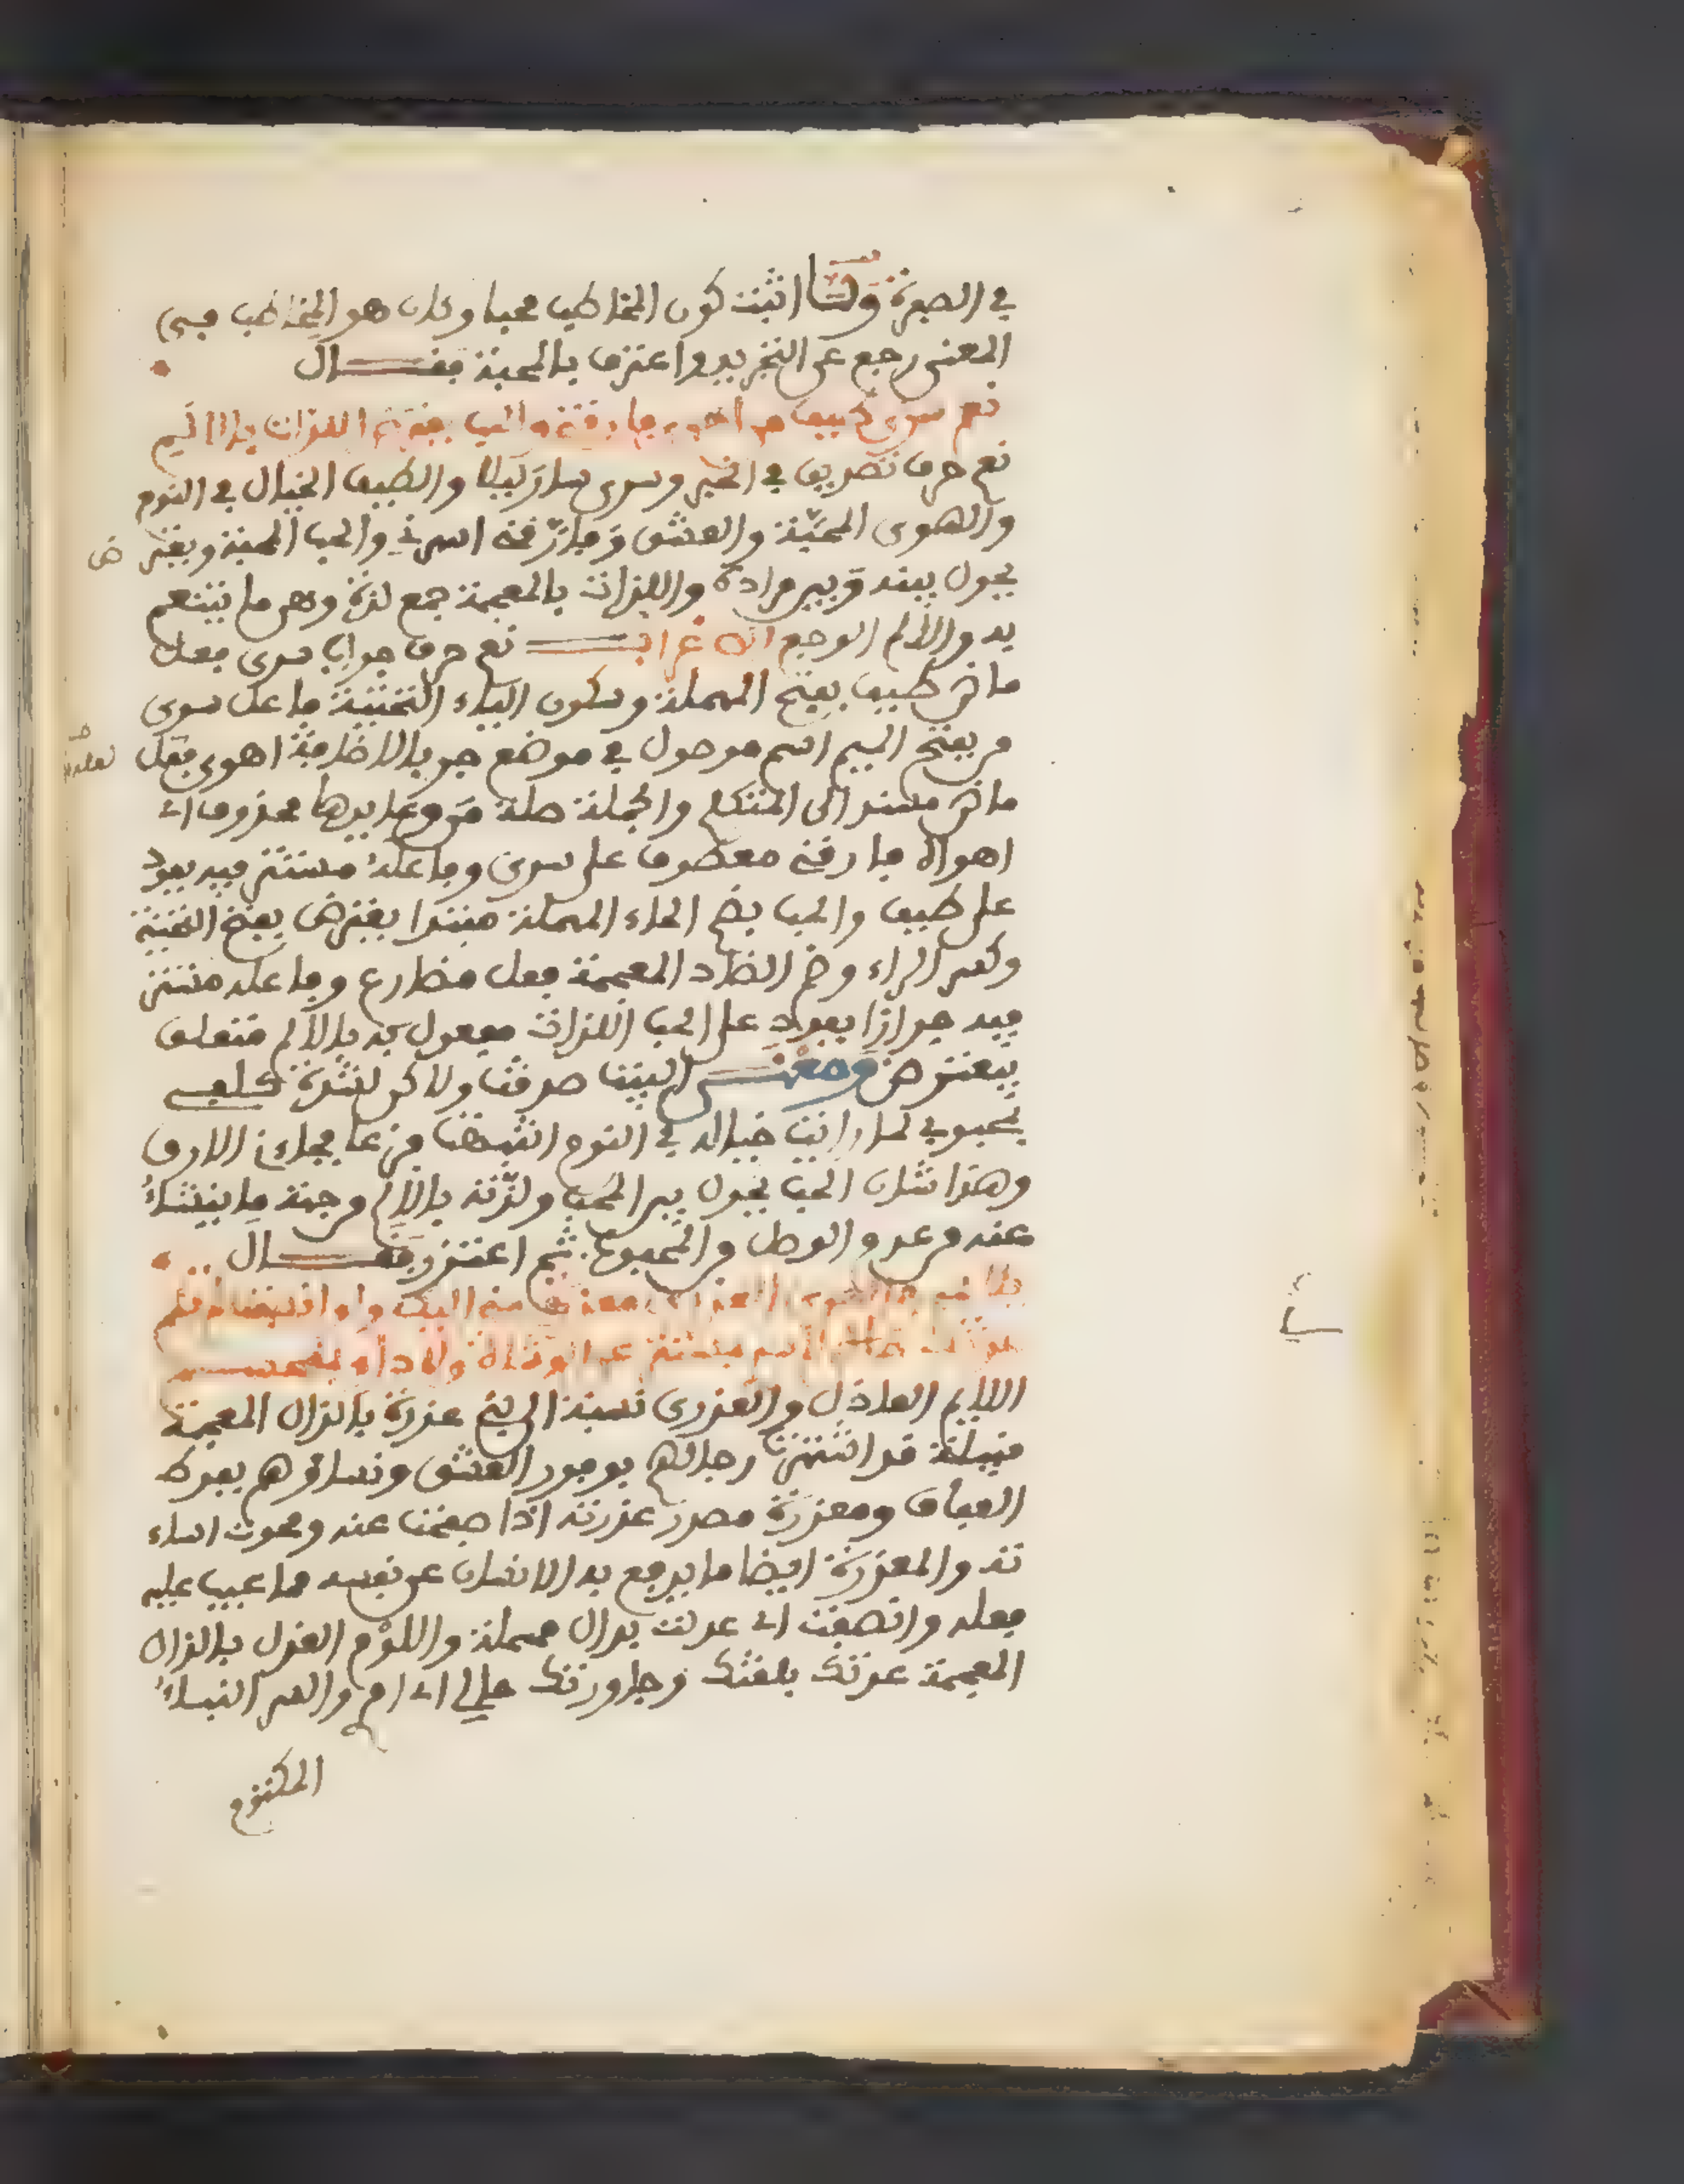 في الصورة ولما اثبت كون المخاطب محبا وكان هو المخاطب في
المعنى رجع عن التجريد واعترف بالمحبة فقال
نعم سرى طيف من اهوى فارقني والحب يعترض اللذات بالالم
نعم حرف تصديق في الخبر وسرى سار ليلا والطيف الخيال في النوم
والهوى المحبة والعشق وفارقني اسهرني والحب المحبة ويعتر ض
يحول بينه وبين مراده واللذات بالمعجمة جمع لذة وهي ما يتنعم
به والالم الوجع الاعراب نعم حرف جواب سرى فعل
ماض طيف بفتح المهملة وسكون الياء التحتية فاعل سرى
من بفتح الميم اسم موصول في موضع جر بالاضافة اهوى فعل
ماض مسند الى المتكلم والجملة صلة من وعايدها محذوف اي
اهواه فارقني معطوف على سرى وفاعله مستتر فيه يعود
على طيف والحب بضم الحاء المهملة مبتدا يعترض بفتح التحتية
وكسر الراء وضم الضاد المعجمة فعل مضارع وفاعله مستتر
فيه جوازا يعود على الحب اللذات مفعول به بالالم متعلق
بيعترض ومعنى البيت صدقت ولاكن لشدة كلفي
بمحبوبي لما رايت خياله في النوم انتبهت فزعا فجاءني الارق
وهذا شان الحب يحول بين المحب ولذته بالالم من جهة ما ينشأ
عنه من عدم الوصل من المحبوب ثم اعتذر فقال
يا لايمي في الهوى العذري معذرة مني اليك ولو انصفت لم تلم
عدتك حالي لا سري بمستتر عن الوشاة ولا داءي بمنحسم
اللايم العاذل والعذري نسبة الى بني عذرة بالذال المعجمة
قبيلة قد اشتهرت رجالهم بوفور العشق ونساؤهم بفرط
العفاف ومعذرة مصدر عذرته اذا صفحت عنه ومحوت اساء
ته والمعذرة ايضا ما يدفع به الانسان عن نفسه ما عيب عليه
فعله وانصفت اي عدلت بدال مهملة واللوم العذل بالذال
المعجمة عدتك بلغتك وجاوزتك حالي اي امري والسر النبأ
المكتوم